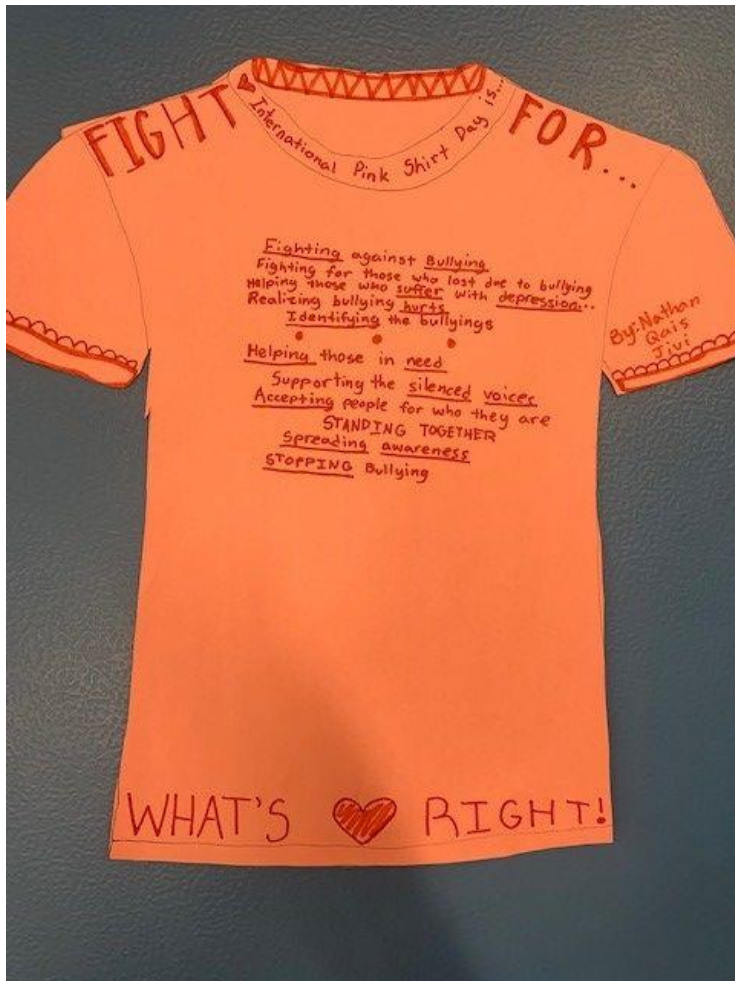 FIGHT FOR...
International Pink Shirt Day is...
Fighting against Bullying
Fighting for those who lost due to bullying
Helping those who suffer with depression...
Realizing bullying hurts
Identifying the bullyings
Helping those in need
Supporting the silenced voices
Accepting people for who they are
STANDING TOGETHER
Spreading awareness
STOPPING Bullying
By: Nathan
Qais
Jivi
WHAT'S RIGHT!